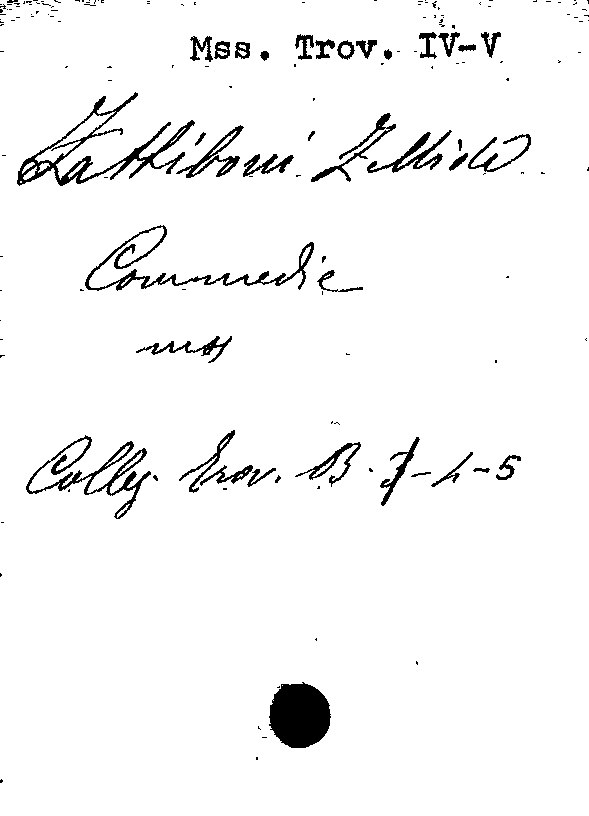 Mss. Trov. IV-V
Zattiboni Zellide
Commedie
mss
Colloc. Trov. B. 3-4-5